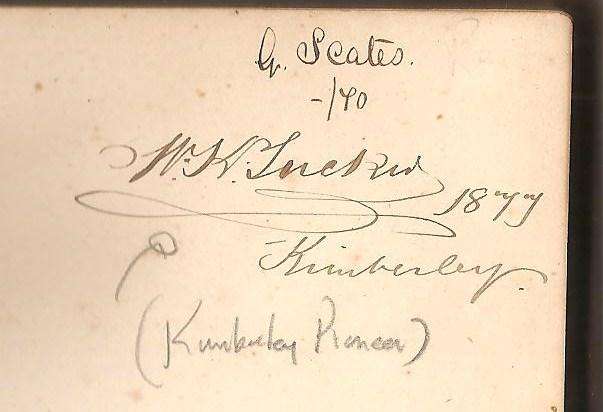 G. Scates.
-/40
W. K. Tucker
1877
Kimberley.
(Kimberley Pioneer)